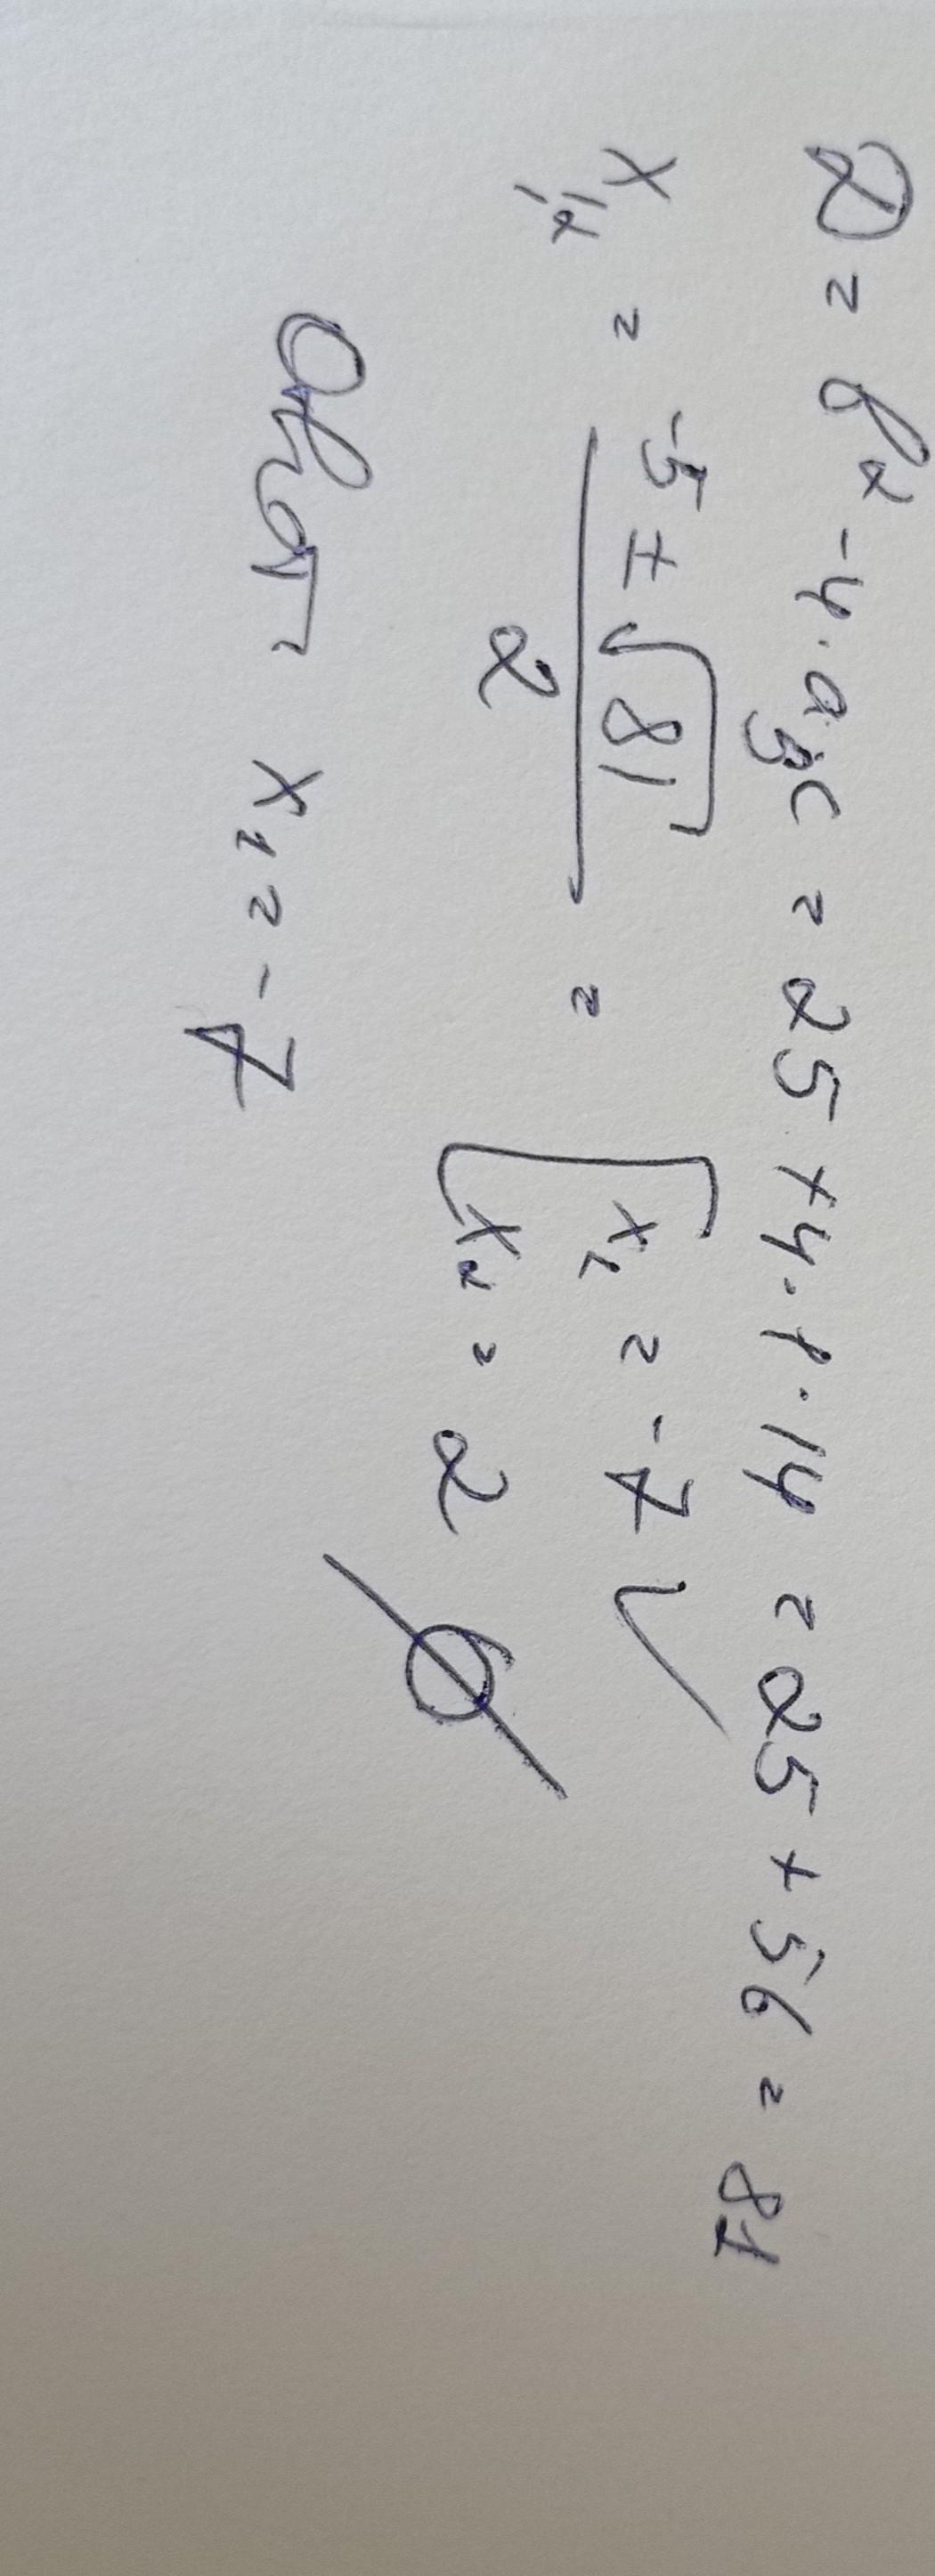 D = b² - 4·a·c = 25 + 4·1·14 = 25 + 56 = 81
x₁,₂ = (-5 ± √81) / 2 = [ x₁ = -7 ✓
x₂ = 2 ∅
Отв: x₁ = -7